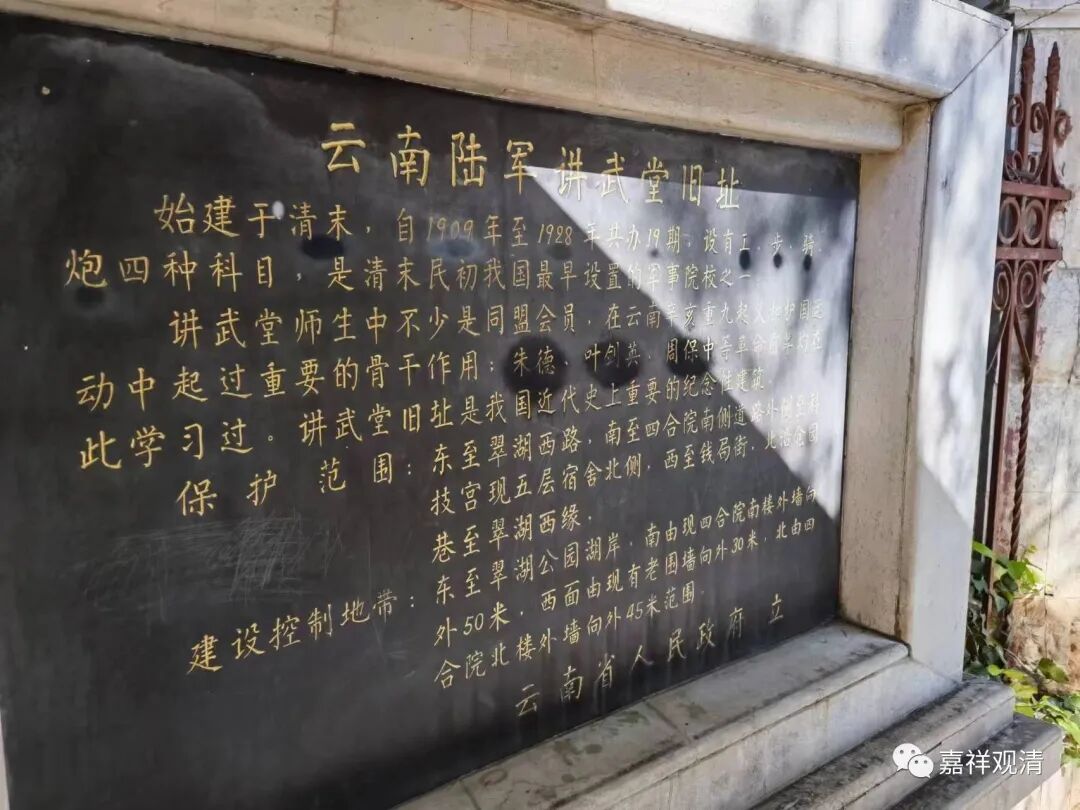 云南陆军讲武堂旧址
始建于清末，自1909年至1928年共办19期，设有工、步、骑、
炮四种科目，是清末民初我国最早设置的军事院校之一
讲武堂师生中不少是同盟会员，在云南辛亥重九起义和护国运
动中起过重要的骨干作用；朱德、叶剑英、周保中等革命前辈均在
此学习过。讲武堂旧址是我国近代史上重要的纪念性建筑.
保护范围：东至翠湖西路，南至四合院南侧道路外侧至科
技宫现五层宿舍北侧，西至钱局街，北沿仓园
巷至翠湖西缘.
建设控制地带：东至翠湖公园湖岸，南由现四合院南楼外墙向
外50米，西面由现有老围墙向外30米，北由四
合院北楼外墙向外45米范围.
云南省人民政府立
嘉祥观清